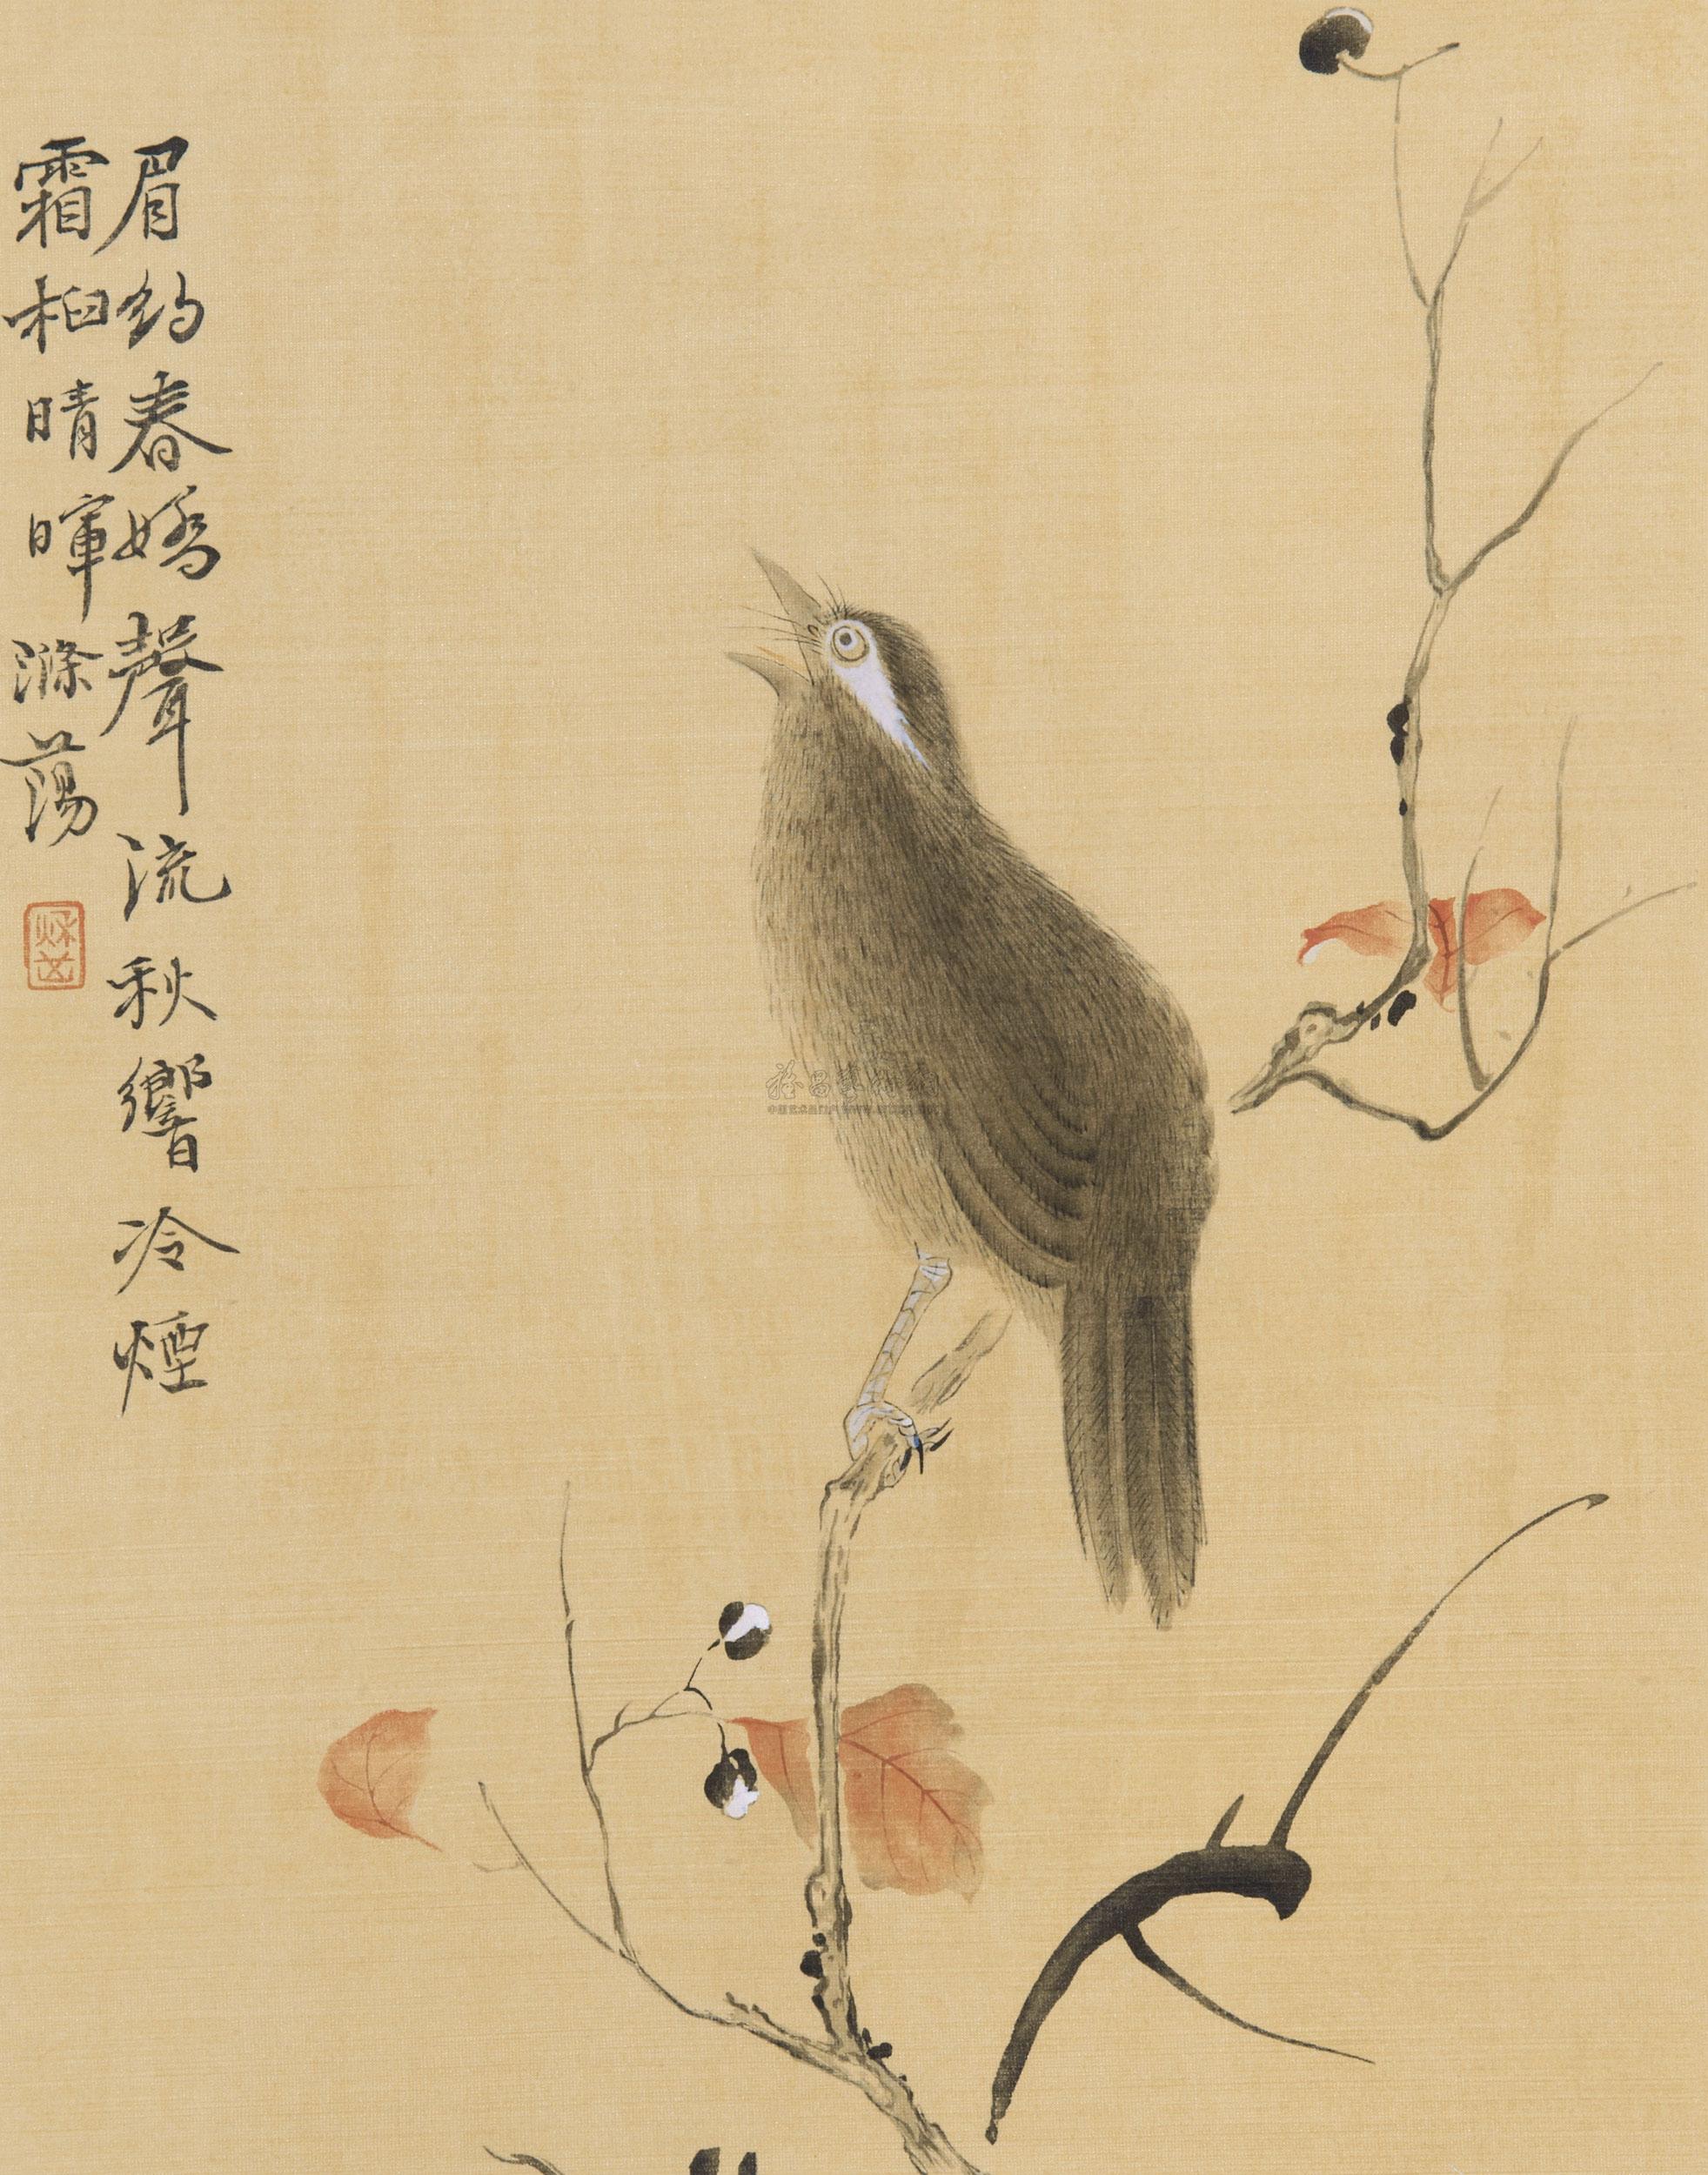 眉約春嬌聲流秋響冷煙
霜桕晴暉滌蕩